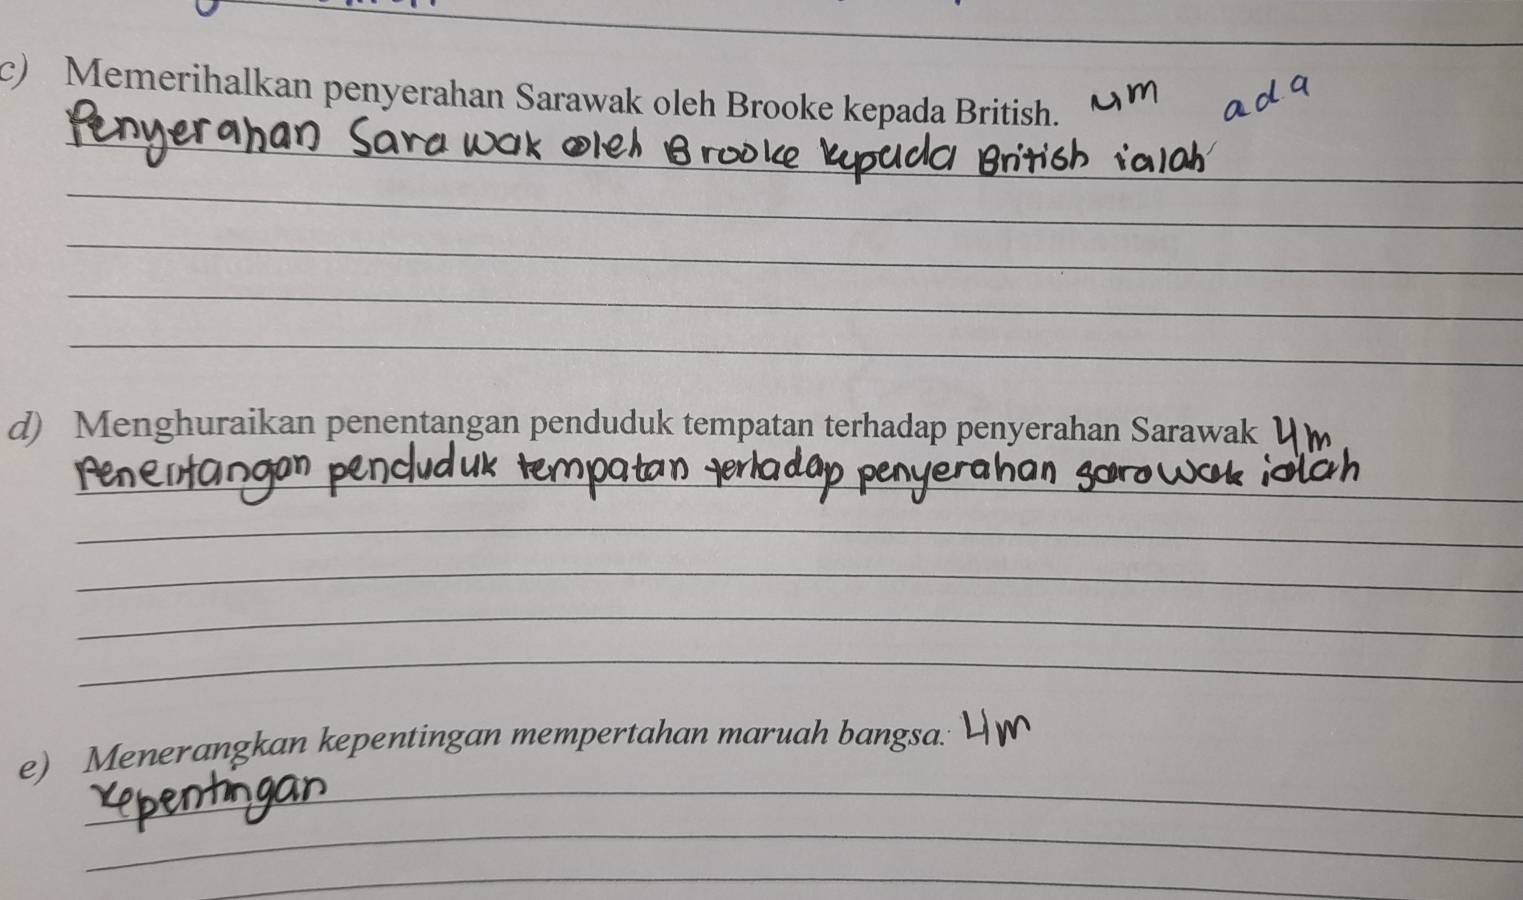 c) Memerihalkan penyerahan Sarawak oleh Brooke kepada British. 4m ada
Penyerahan Sarawak oleh Brooke kepada British ialah
d) Menghuraikan penentangan penduduk tempatan terhadap penyerahan Sarawak 4m
Penentangan penduduk tempatan terhadap penyerahan sarawak ialah
e) Menerangkan kepentingan mempertahan maruah bangsa. 4m
Kepentingan